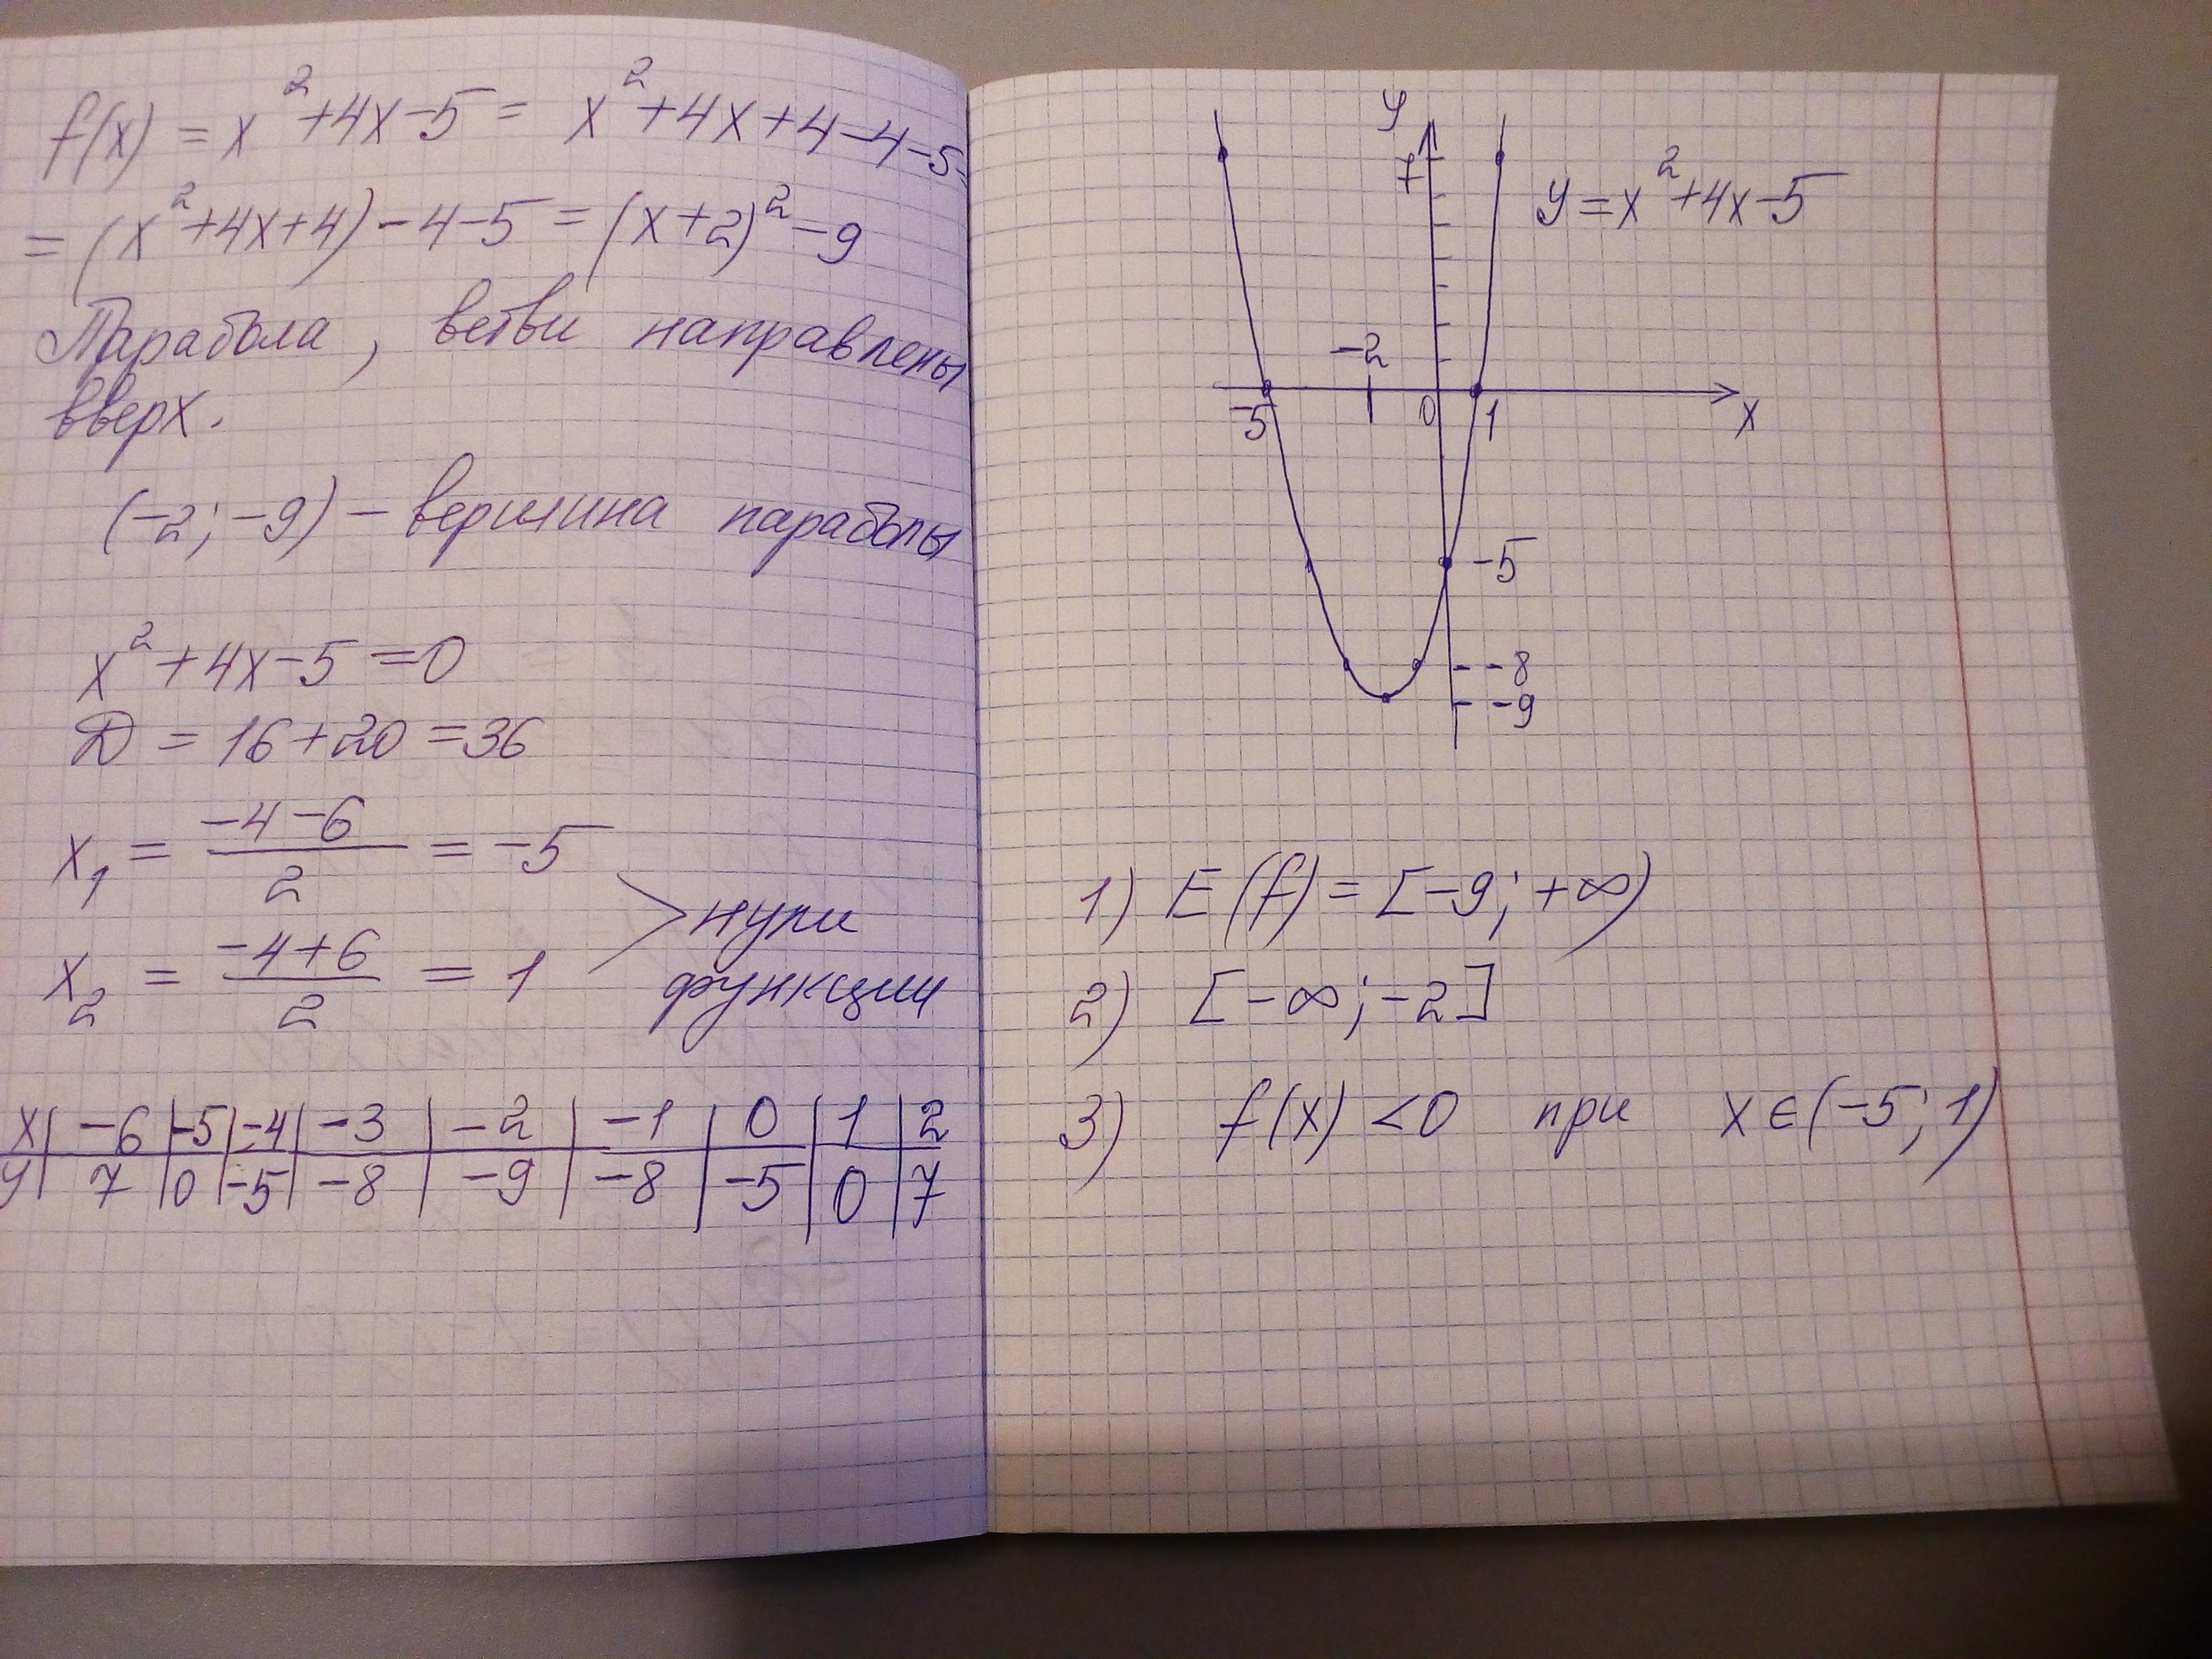 f(x) = x²+4x-5 = x²+4x+4-4-5=
= (x²+4x+4)-4-5 = (x+2)²-9
Парабола, ветви направлены
вверх.
(-2; -9) - вершина параболы
x²+4x-5=0
D = 16+20=36
x₁ = (-4-6)/2 = -5
x₂ = (-4+6)/2 = 1
> нули
функции
x | -6 | -5 | -4 | -3 | -2 | -1 | 0 | 1 | 2
y | 7 | 0 | -5 | -8 | -9 | -8 | -5 | 0 | 7
y
7
y=x²+4x-5
-2
-5 0 1 x
-5
-8
-9
1) E(f) = [-9; +∞)
2) [-∞; -2]
3) f(x) <0 при x∈(-5; 1)